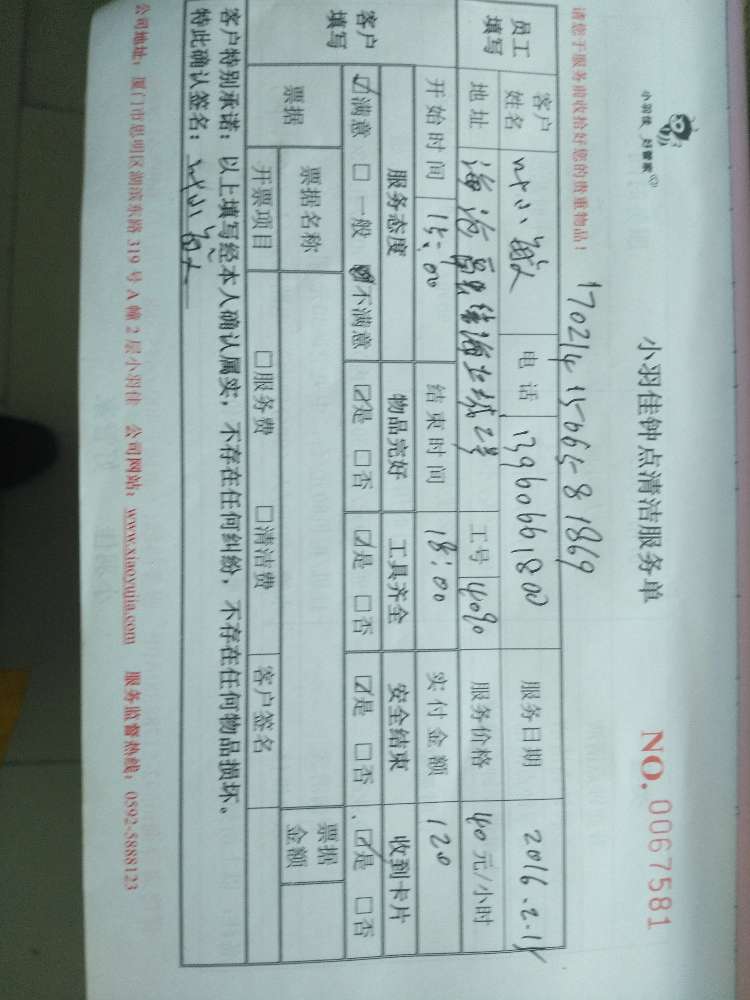 小羽佳 好管家
小羽佳钟点清洁服务单
NO. 0067581
请您于服务前收拾好您的贵重物品！
员工填写 客户姓名 叶小 电话 13960661800 服务日期 2016.2.15
地址 海沧 工号 4090 服务价格 40 元/小时
客户填写 开始时间 15:00 结束时间 18:00 实付金额 120
服务态度 物品完好 工具齐全 安全结束 收到卡片
☑满意 □一般 不满意 ☑是 □否 ☑是 □否 ☑是 □否 ☑是 □否
票据 票据名称 票据金额
开票项目 □服务费 □清洁费 客户签名
客户特别承诺：以上填写经本人确认属实，不存在任何纠纷，不存在任何物品损坏。
特此确认签名：叶小
公司地址：厦门市思明区湖滨东路 319 号 A 幢 2 层小羽佳 公司网站：www.xiaoyujia.com 服务监督热线：0592-5888123